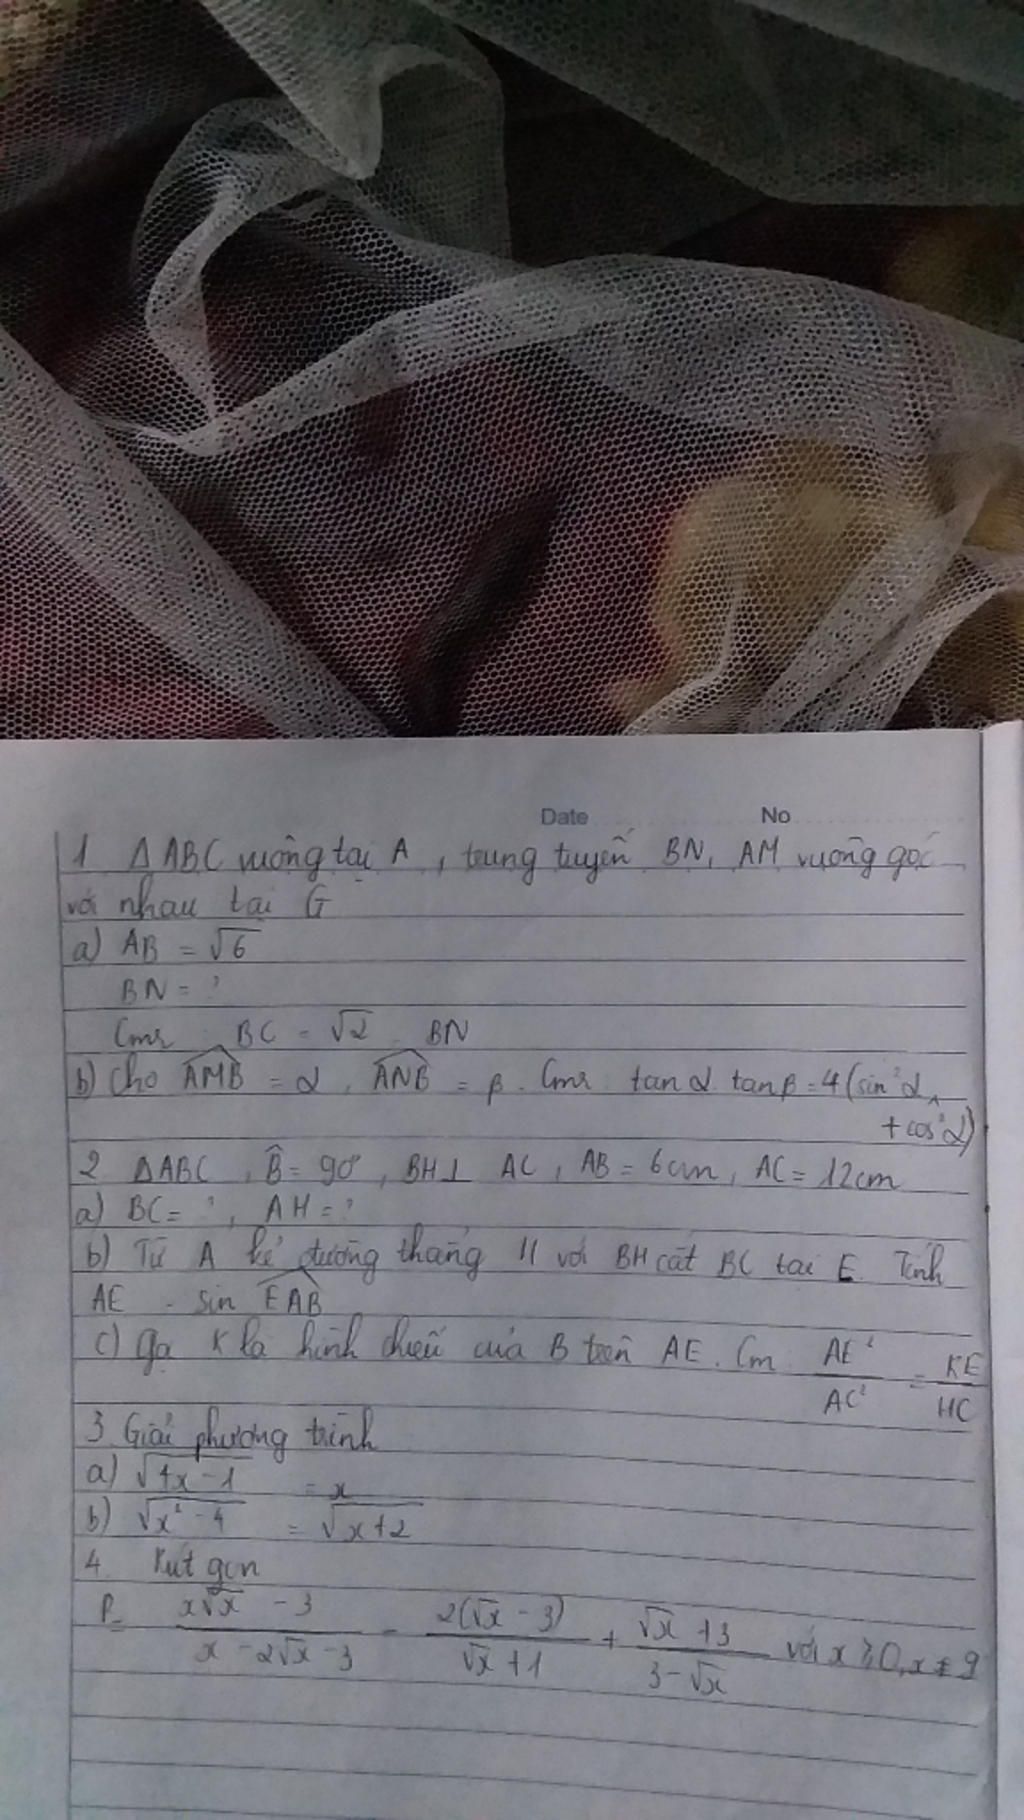 Date No
1 ΔABC vuông tại A, trung tuyến BN, AM vuông góc
với nhau tại G
a) AB = √6
BN = ?
Cmr BC = √2 BN
b) Cho AMB = α, ANB = β. Cmr tanα. tanβ = 4(sin²α
+ cos²α)
2 ΔABC, B̂ = 90°, BH ⊥ AC, AB = 6cm, AC = 12cm
a) BC = ?, AH = ?
b) Từ A kẻ đường thẳng // với BH cắt BC tại E. Tính
AE. sin EAB
c) Gọi K là hình chiếu của B trên AE. Cm AE²/AC² = KE/HC
3 Giải phương trình
a) √4x - 1 = x
b) √x² - 4 = √x+2
4. Rút gọn
P = (x√x - 3)/(x - 2√x - 3) - 2(√x - 3)/(√x + 1) + (√x + 3)/(3 - √x) với x ≥ 0, x ≠ 9